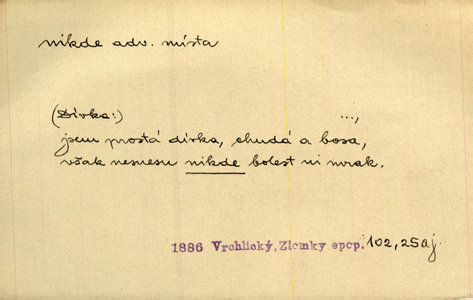 nikde adv. místa
(Dívka:) ...,
jsem prostá dívka, chudá a bosa,
však nesnesu nikde bolest ni mrak.
1886 Vrchlický, Zlomky epop. 102, 25aj.